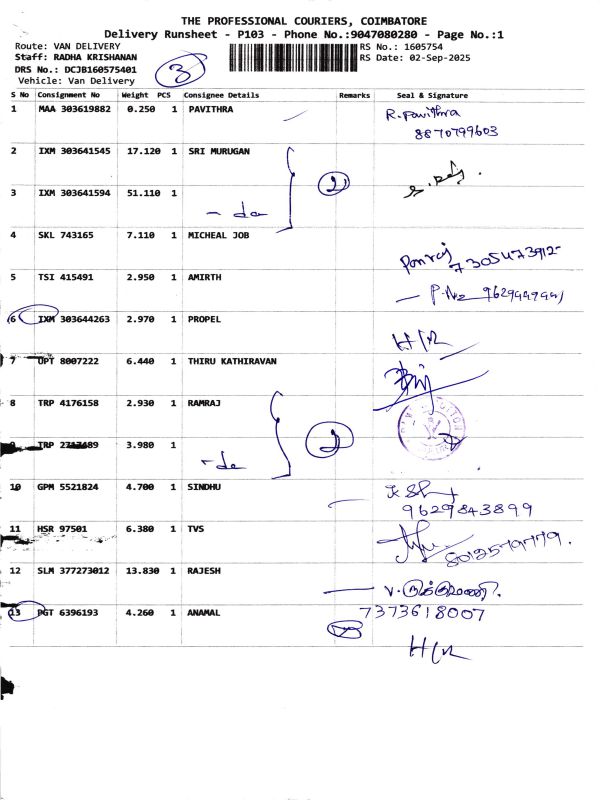 THE PROFESSIONAL COURIERS, COIMBATORE
Delivery Runsheet - P103 - Phone No.:9047080280 - Page No.:1
Route: VAN DELIVERY RS No.: 1605754
Staff: RADHA KRISHANAN RS Date: 02-Sep-2025
DRS No.: DCJB160575401 3
Vehicle: Van Delivery
S No Consignment No Weight PCS Consignee Details Remarks Seal & Signature
1 MAA 303619882 0.250 1 PAVITHRA R. Pavithra
8870799603
2 IXM 303641545 17.120 1 SRI MURUGAN 2
3 IXM 303641594 51.110 1 - do
4 SKL 743165 7.110 1 MICHEAL JOB Ponraj
5 TSI 415491 2.950 1 AMIRTH
6 IXM 303644263 2.970 1 PROPEL
7 OPT 8007222 6.440 1 THIRU KATHIRAVAN
8 TRP 4176158 2.930 1 RAMRAJ 2
9 TRP 1 3.980 1 - do
10 GPM 5521824 4.700 1 SINDHU
9629843899
11 HSR 97501 6.380 1 TVS
12 SLM 377273012 13.830 1 RAJESH
13 PGT 6396193 4.260 1 ANAMAL 7373618007